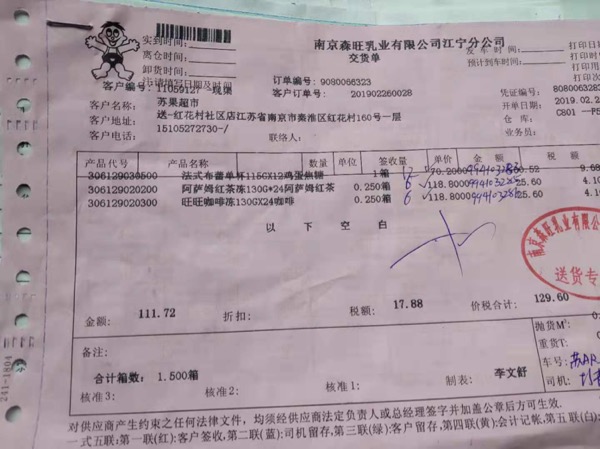 南京森旺乳业有限公司江宁分公司
交货单
实到时间:
离仓时间:
卸货时间:
发车时间:
预计到车时间:
打印日
打印时
打印用
客户编号: 11059127
订单编号: 9080066323
凭证编号: 8080066328
客户名称: 苏果超市
客户订单号: 201902260028
开单日期: 2019.02.2
送-红花村社区店江苏省南京市秦淮区红花村160号一层
仓 库: C801
客户电话: 15105272730-/
联络人:
业务员:
产品代号 产品名称 数量 单位 签收量 单价 金 额 税 额
306129030500 法式布蕾单杯115GX12鸡蛋焦糖 1箱 12 70.2000 60.52 9.68
306129020200 阿萨姆红茶冻130G*24阿萨姆红茶 0.250箱 6 118.8000 25.60 4.10
306129020300 旺旺咖啡冻130GX24咖啡 0.250箱 6 118.8000 25.60 4.10
以 下 空 白
南京森旺乳业有限公
送货专
金额: 111.72 折扣: 税额: 17.88 价税合计: 129.60
抛货M³: 0.
重货T: 0.
备注:
车号: 苏AR
合计箱数: 1.500箱
司机:
核准3: 核准2: 核准1: 制表: 李文舒
241-1804
对供应商产生约束之任何法律文件，均须经供应商法定负责人或总经理签字并加盖公章后方可生效.
一式五联:第一联(红):客户签收,第二联(蓝):司机留存,第三联(绿):客户留存,第四联(黄):会计记帐,第五联(白):